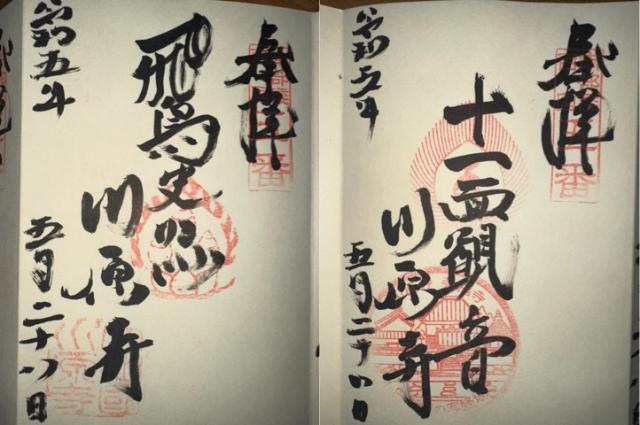 奉拝
飛鳥史
川原寺
令和五年 五月二十八日
奉拝
十一面觀音
川原寺
令和五年 五月二十八日